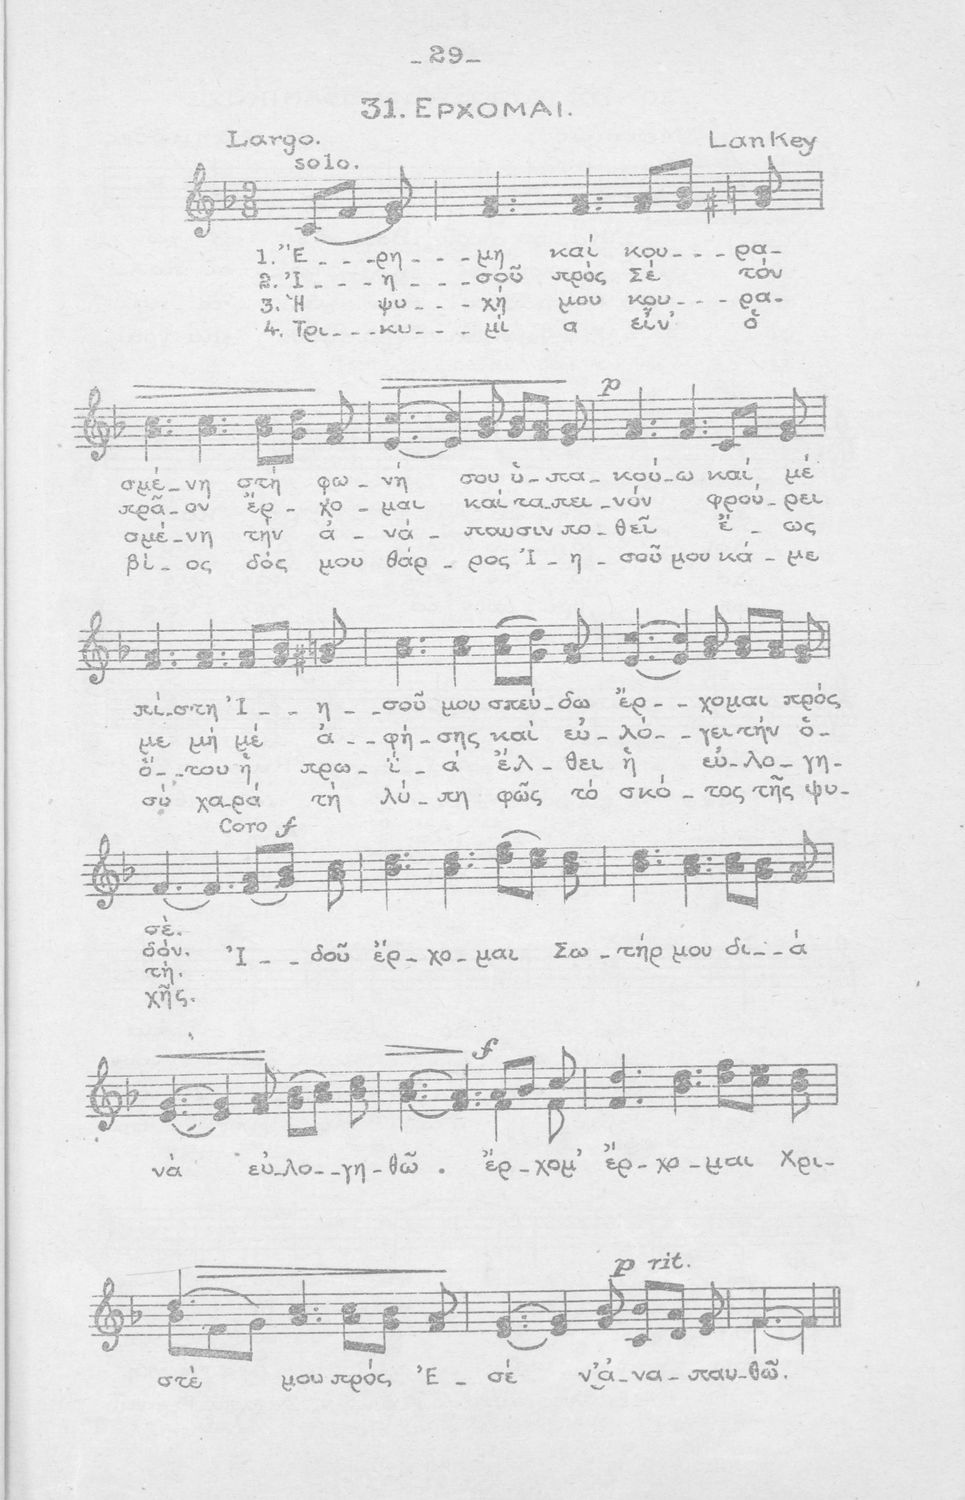 _ 29 _
31. ΕΡΧΟΜΑΙ.
Largo. LanKey
solo.
1. Ἔ _ _ _ ρη _ _ _ μη καί κου _ _ _ ρα_
2. Ἰ _ _ _ η _ _ _ σοῦ πρός Σέ τόν
3. Ἡ ψυ _ _ _ χή μου κου _ _ _ ρα_
4. Τρι _ _ _ κυ _ _ _ μί α εἶν' ὁ
p
σμέ_νη στή φω _ νή σου ὑ_πα_κού_ω καί μέ
πρᾶ_ον ἔρ _ χο _ μαι καί τα_πει_νόν φρού_ρει
σμέ_νη τήν ἀ _ νά _ παυσιν πο_θεῖ ἕ _ ως
βί _ ος δός μου θάρ _ ρος Ἰ _ η _ σοῦ μου κά _ με
πί_στη Ἰ _ _ η _ _ σοῦ μου σπεύ_δω ἔρ _ _ χομαι πρός
με μή μέ ἀ _ _ φή_σῃς καί εὐ _ λό _ _ γει τήν ὁ_
ὅ _ _ του ἡ πρω _ ΐ _ ά ἔλ _ θει ἡ εὐ_λο _ γη_
σύ χα_ρά τή λύ _ πη φῶς τό σκό _ τος τῆς ψυ_
Coro f
σέ.
δόν. Ἰ _ _ δοῦ ἔρ_χο_μαι Σω _ τήρ μου δι _ _ ά
τή.
χῆς.
f
νά εὐ_λο_ _γη_θῶ . ἔρ_χομ' ἔρ_χο_μαι Χρι_
p rit.
στέ μου πρός Ἐ _ σέ ν'ἀ_να_παυ_θῶ.